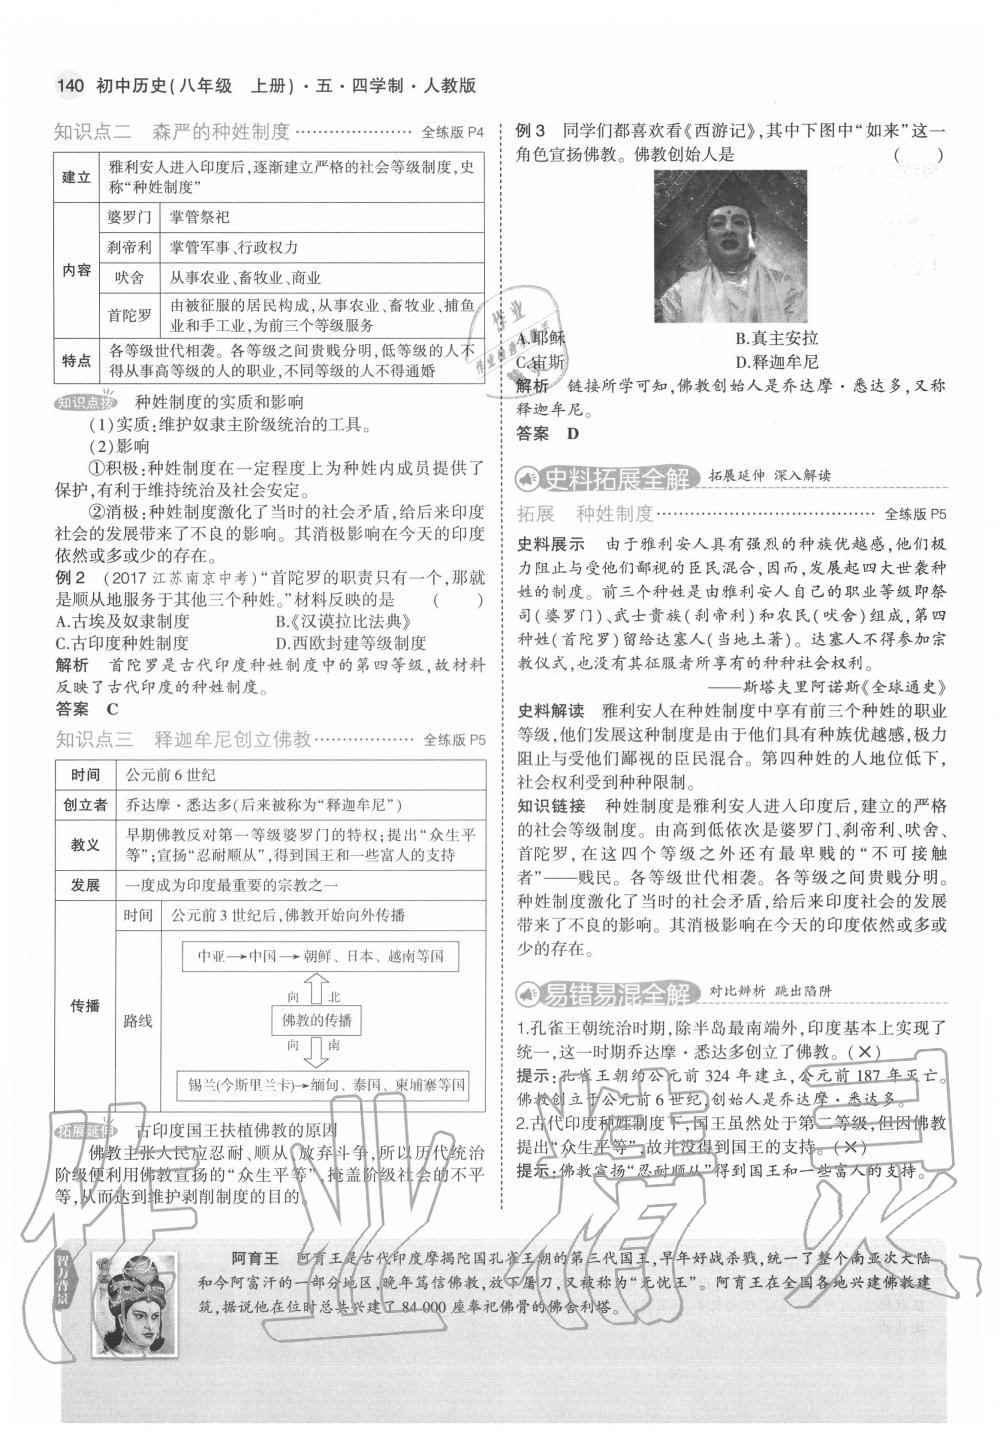 140 初中历史(八年级 上册)·五·四学制·人教版
知识点二 森严的种姓制度 ………………… 全练版 P4
建立
雅利安人进入印度后,逐渐建立严格的社会等级制度,史
称“种姓制度”
内容
婆罗门 掌管祭祀
刹帝利 掌管军事、行政权力
吠舍 从事农业、畜牧业、商业
首陀罗
由被征服的居民构成,从事农业、畜牧业、捕鱼
业和手工业,为前三个等级服务
特点
各等级世代相袭。各等级之间贵贱分明,低等级的人不
得从事高等级的人的职业,不同等级的人不得通婚
知识点拨 种姓制度的实质和影响
(1)实质:维护奴隶主阶级统治的工具。
(2)影响
①积极:种姓制度在一定程度上为种姓内成员提供了
保护,有利于维持统治及社会安定。
②消极:种姓制度激化了当时的社会矛盾,给后来印度
社会的发展带来了不良的影响。其消极影响在今天的印度
依然或多或少的存在。
例 2 (2017 江苏南京中考)“首陀罗的职责只有一个,那就
是顺从地服务于其他三个种姓。”材料反映的是 ( )
A.古埃及奴隶制度 B.《汉谟拉比法典》
C.古印度种姓制度 D.西欧封建等级制度
解析 首陀罗是古代印度种姓制度中的第四等级,故材料
反映了古代印度的种姓制度。
答案 C
知识点三 释迦牟尼创立佛教 ……………… 全练版 P5
时间 公元前 6 世纪
创立者 乔达摩·悉达多(后来被称为“释迦牟尼”)
教义
早期佛教反对第一等级婆罗门的特权;提出“众生平
等”;宣扬“忍耐顺从”,得到国王和一些富人的支持
发展 一度成为印度最重要的宗教之一
传播
时间 公元前 3 世纪后,佛教开始向外传播
路线
中亚→中国→朝鲜、日本、越南等国
向 北
佛教的传播
向 南
锡兰(今斯里兰卡)→缅甸、泰国、柬埔寨等国
拓展延伸 古印度国王扶植佛教的原因
佛教主张人民应忍耐、顺从、放弃斗争,所以历代统治
阶级便利用佛教宣扬的“众生平等”,掩盖阶级社会的不平
等,从而达到维护剥削制度的目的。
例 3 同学们都喜欢看《西游记》,其中下图中“如来”这一
角色宣扬佛教。佛教创始人是 ( )
A.耶稣 B.真主安拉
C.宙斯 D.释迦牟尼
解析 链接所学可知,佛教创始人是乔达摩·悉达多,又称
释迦牟尼。
答案 D
史料拓展全解 拓展延伸 深入解读
拓展 种姓制度 ……………………………… 全练版 P5
史料展示 由于雅利安人具有强烈的种族优越感,他们极
力阻止与受他们鄙视的臣民混合,因而,发展起四大世袭种
姓的制度。前三个种姓是由雅利安人自己的职业等级即祭
司(婆罗门)、武士贵族(刹帝利)和农民(吠舍)组成,第四
种姓(首陀罗)留给达塞人(当地土著)。达塞人不得参加宗
教仪式,也没有其征服者所享有的种种社会权利。
——斯塔夫里阿诺斯《全球通史》
史料解读 雅利安人在种姓制度中享有前三个种姓的职业
等级,他们发展这种制度是由于他们具有种族优越感,极力
阻止与受他们鄙视的臣民混合。第四种姓的人地位低下,
社会权利受到种种限制。
知识链接 种姓制度是雅利安人进入印度后,建立的严格
的社会等级制度。由高到低依次是婆罗门、刹帝利、吠舍、
首陀罗,在这四个等级之外还有最卑贱的“不可接触
者”——贱民。各等级世代相袭。各等级之间贵贱分明。
种姓制度激化了当时的社会矛盾,给后来印度社会的发展
带来了不良的影响。其消极影响在今天的印度依然或多或
少的存在。
易错易混全解 对比辨析 跳出陷阱
1.孔雀王朝统治时期,除半岛最南端外,印度基本上实现了
统一,这一时期乔达摩·悉达多创立了佛教。(×)
提示:孔雀王朝约公元前 324 年建立,公元前 187 年灭亡。
佛教创立于公元前 6 世纪,创始人是乔达摩·悉达多。
2.古代印度种姓制度下,国王虽然处于第二等级,但因佛教
提出“众生平等”,故并没得到国王的支持。(×)
提示:佛教宣扬“忍耐顺从”得到国王和一些富人的支持。
智力背景
阿育王 阿育王是古代印度摩揭陀国孔雀王朝的第三代国王,早年好战杀戮,统一了整个南亚次大陆
和今阿富汗的一部分地区,晚年笃信佛教,放下屠刀,又被称为“无忧王”。阿育王在全国各地兴建佛教建
筑,据说他在位时总共兴建了 84 000 座奉祀佛骨的佛舍利塔。
作业精灵